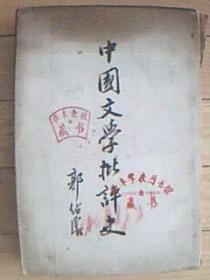 中國文學批評史
郭紹虞
藏书